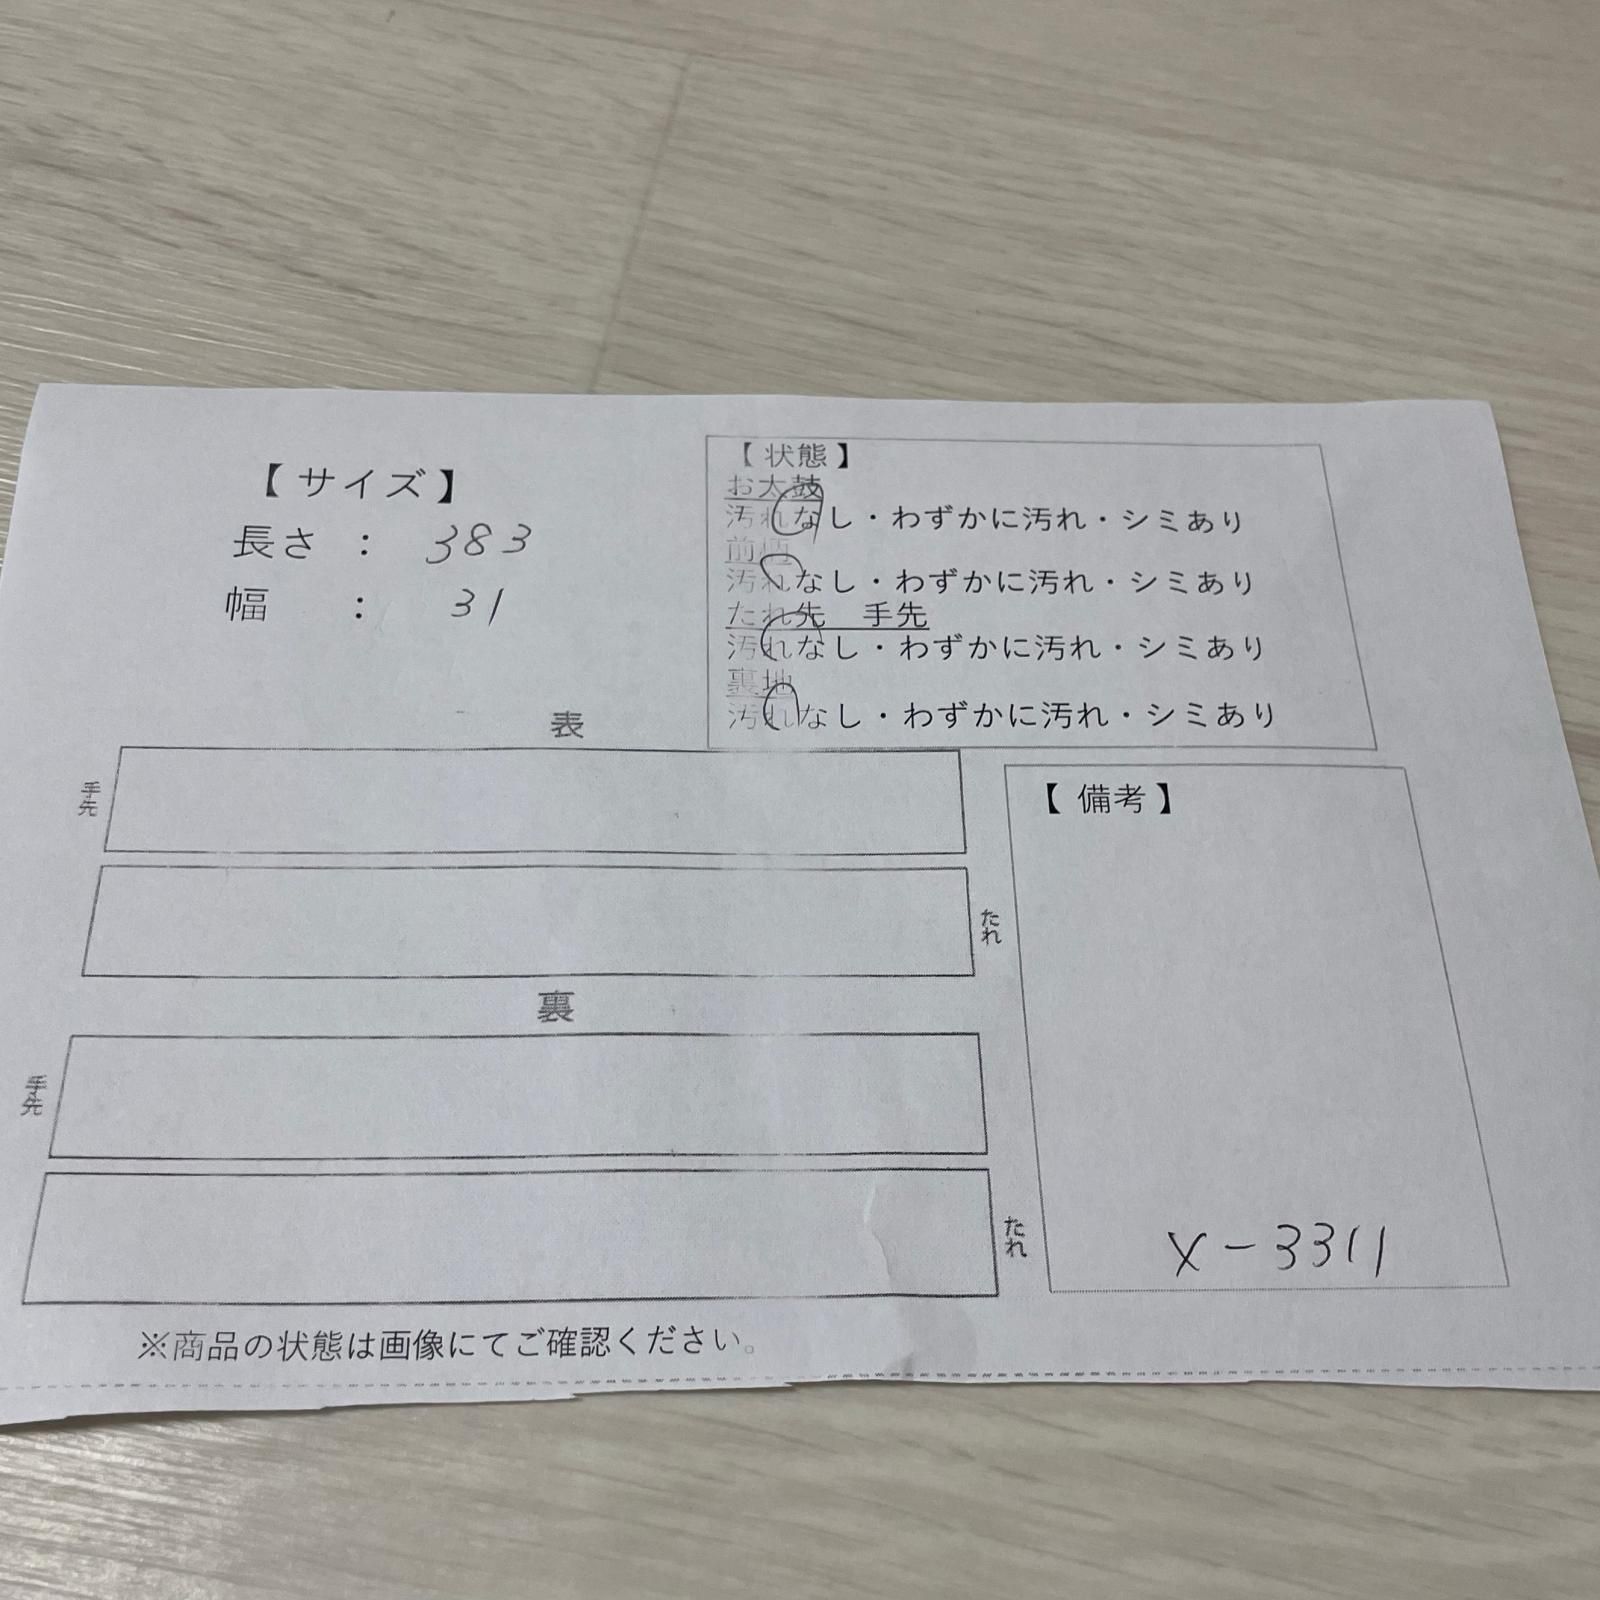 【 サイズ 】
長さ ： 383
幅 ： 31
【 状態 】
お太鼓
汚れなし・わずかに汚れ・シミあり
前柄
汚れなし・わずかに汚れ・シミあり
たれ先 手先
汚れなし・わずかに汚れ・シミあり
裏地
汚れなし・わずかに汚れ・シミあり
表
手先
たれ
裏
手先
たれ
【 備考 】
X-3311
※商品の状態は画像にてご確認ください。